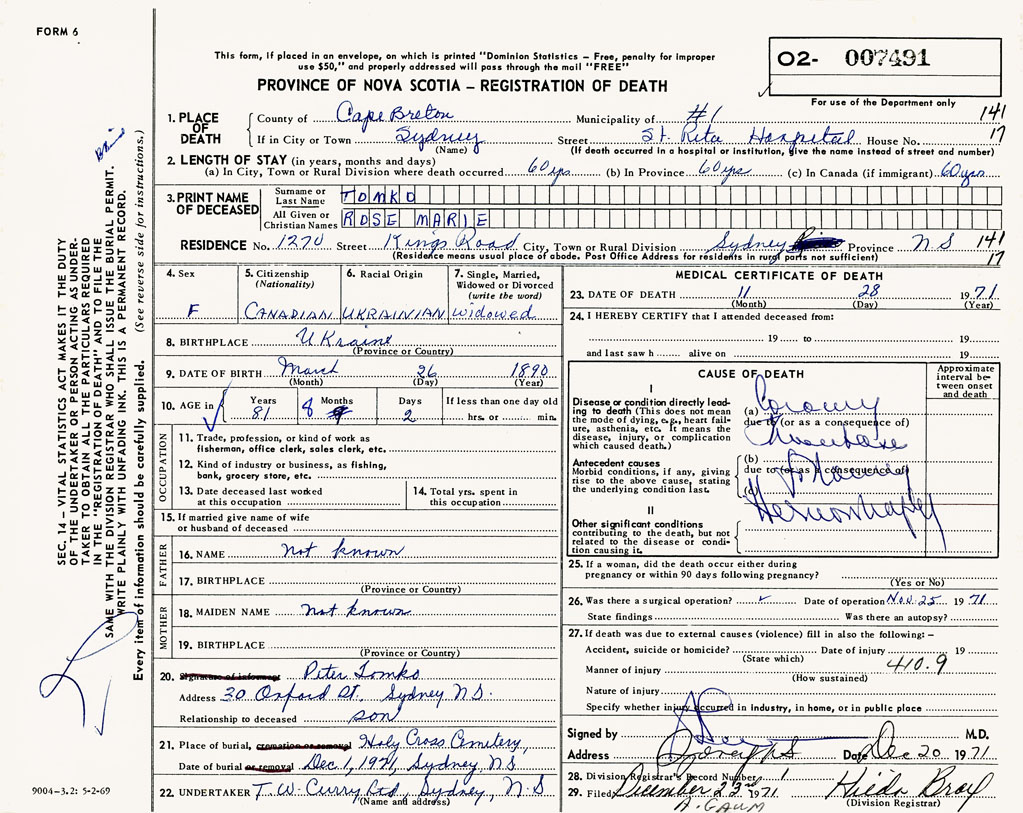 FORM 6
This form, if placed in an envelope, on which is printed "Dominion Statistics – Free, penalty for improper
use $50," and properly addressed will pass through the mail "FREE"
O2- 007491
PROVINCE OF NOVA SCOTIA – REGISTRATION OF DEATH
For use of the Department only
1. PLACE OF DEATH
County of Cape Breton Municipality of #1 141
If in City or Town Sydney Street St. Rita Hospital House No. 17
(Name) (If death occurred in a hospital or institution, give the name instead of street and number)
2. LENGTH OF STAY (in years, months and days)
(a) In City, Town or Rural Division where death occurred 60 yrs (b) In Province 60 yrs (c) In Canada (if immigrant) 60 yrs
3. PRINT NAME OF DECEASED
Surname or Last Name TOMKO
All Given or Christian Names ROSE MARIE
RESIDENCE No. 1270 Street Kings Road City, Town or Rural Division Sydney Province N S 141
(Residence means usual place of abode. Post Office Address for residents in rural parts not sufficient) 17
4. Sex
F
5. Citizenship
(Nationality)
CANADIAN
6. Racial Origin
UKRAINIAN
7. Single, Married,
Widowed or Divorced
(write the word)
widowed
8. BIRTHPLACE UKraine
(Province or Country)
9. DATE OF BIRTH March 26 1890
(Month) (Day) (Year)
10. AGE in Years 81 Months 8 Days 2 If less than one day old
hrs. or min.
OCCUPATION
11. Trade, profession, or kind of work as
fisherman, office clerk, sales clerk, etc.
12. Kind of industry or business, as fishing,
bank, grocery store, etc.
13. Date deceased last worked
at this occupation
14. Total yrs. spent in
this occupation
15. If married give name of wife
or husband of deceased
FATHER
16. NAME Not known
17. BIRTHPLACE
(Province or Country)
MOTHER
18. MAIDEN NAME Not known
19. BIRTHPLACE
(Province or Country)
20. Signature of informant Peter Tomko
Address 30 Oxford St. Sydney N.S.
Relationship to deceased son
21. Place of burial, cremation or removal Holy Cross Cemetery,
Date of burial or removal Dec 1, 1971, Sydney, N.S
22. UNDERTAKER T. W. Curry Ltd, Sydney, N.S
(Name and address)
MEDICAL CERTIFICATE OF DEATH
23. DATE OF DEATH 11 28 1971
(Month) (Day) (Year)
24. I HEREBY CERTIFY that I attended deceased from:
19 to 19
and last saw h alive on 19
CAUSE OF DEATH
Approximate
interval be-
tween onset
and death
I
Disease or condition directly lead-
ing to death (This does not mean
the mode of dying, e.g., heart fail-
ure, asthenia, etc. It means the
disease, injury, or complication
which caused death.)
(a) Coronary
due to (or as a consequence of)
Antecedent causes
Morbid conditions, if any, giving
rise to the above cause, stating
the underlying condition last.
(b)
due to (or as a consequence of)
(c)
II
Other significant conditions
contributing to the death, but not
related to the disease or condi-
tion causing it.
25. If a woman, did the death occur either during
pregnancy or within 90 days following pregnancy?
(Yes or No)
26. Was there a surgical operation? ✓ Date of operation Nov. 25 1971
State findings Was there an autopsy?
27. If death was due to external causes (violence) fill in also the following: –
Accident, suicide or homicide? Date of injury 19
(State which)
Manner of injury 410.9
(How sustained)
Nature of injury
Specify whether injury occurred in industry, in home, or in public place
Signed by M.D.
Address Date Dec 20 1971
28. Division Registrar's Record Number 1
29. Filed December 23rd 1971 Hilda Bray
A. GAUM (Division Registrar)
SEC. 14 – VITAL STATISTICS ACT MAKES IT THE DUTY
OF THE UNDERTAKER OR PERSON ACTING AS UNDER-
TAKER TO OBTAIN ALL THE PARTICULARS REQUIRED
IN THE "REGISTRATION OF DEATH" AND TO FILE THE
SAME WITH THE DIVISION REGISTRAR WHO SHALL ISSUE THE BURIAL PERMIT.
WRITE PLAINLY WITH UNFADING INK. THIS IS A PERMANENT RECORD.
Every item of information should be carefully supplied. (See reverse side for instructions.)
9004-3.2: 5-2-69